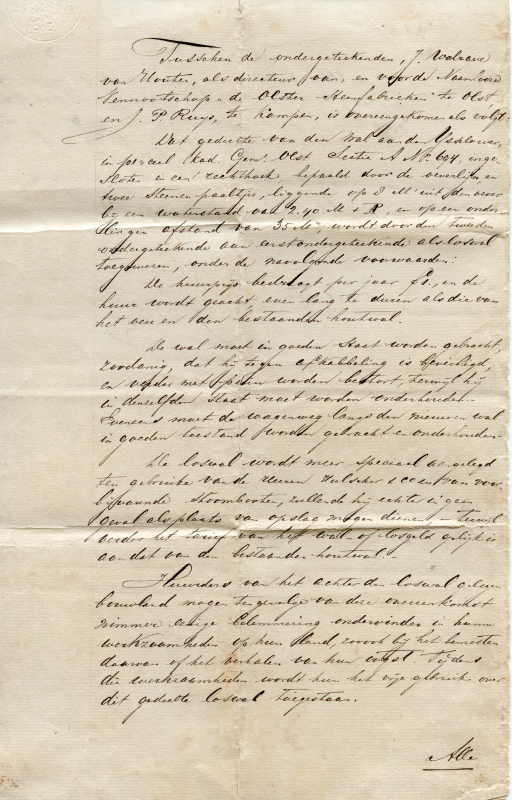 Tusschen de ondergeteekenden, J. Walrave
van Houten, als directeur van, en voor de Naamlooze
Vennootschap "de Olster Steenfabrieken" te Olst
en J. P. Ruys, te Kampen, is overeengekomen als volgt:
Dat gedeelte van den wal aan den IJsseloever,
in perceel kad. Gem. Olst Sectie A No. 604, inge-
sloten in een rechthoek bepaald door de oeverlijn en
twee steenen paaltjes, liggende op 8 M uit den oever
bij een waterstand van 2.40 M + R, en op een onder-
lingen afstand van 35 M. wordt door den tweeden
ondergeteekende aan eerstondergeteekende als loswal
toegewezen, onder de navolgende voorwaarden:
De huurprijs bedraagt per jaar f1. en de
huur wordt geacht, even lang te duren als die van
het veer en den bestaanden houtwal.
De wal moet in goeden staat worden gebracht,
zoodanig, dat hij tegen afkabbeling is beveiligd,
en verder met puin worden bestort, terwijl hij
in denzelfden staat moet worden onderhouden.
Eveneens moet de wagenweg langs den nieuwen wal
in goeden toestand worden gebracht en onderhouden.
De loswal wordt meer speciaal aangelegd
ten gebruike van de Heeren en van voor-
bijvarende stoombooten, zullende hij echter in geen
geval als plaats van opslag mogen dienen, terwijl
verder het tarief van het wal- of losgeld gelijk is
aan dat van den bestaanden houtwal.
Huurders van het achter den loswal gelegen
bouwland mogen tengevolge van deze overeenkomst
nimmer eenige belemmering ondervinden in hunne
werkzaamheden op hun land, zoowel bij het bemesten
daarvan of het verhalen van hun oogst. Tijdens
die werkzaamheden wordt hun het vrije gebruik over
dit gedeelte loswal toegestaan.
Alle